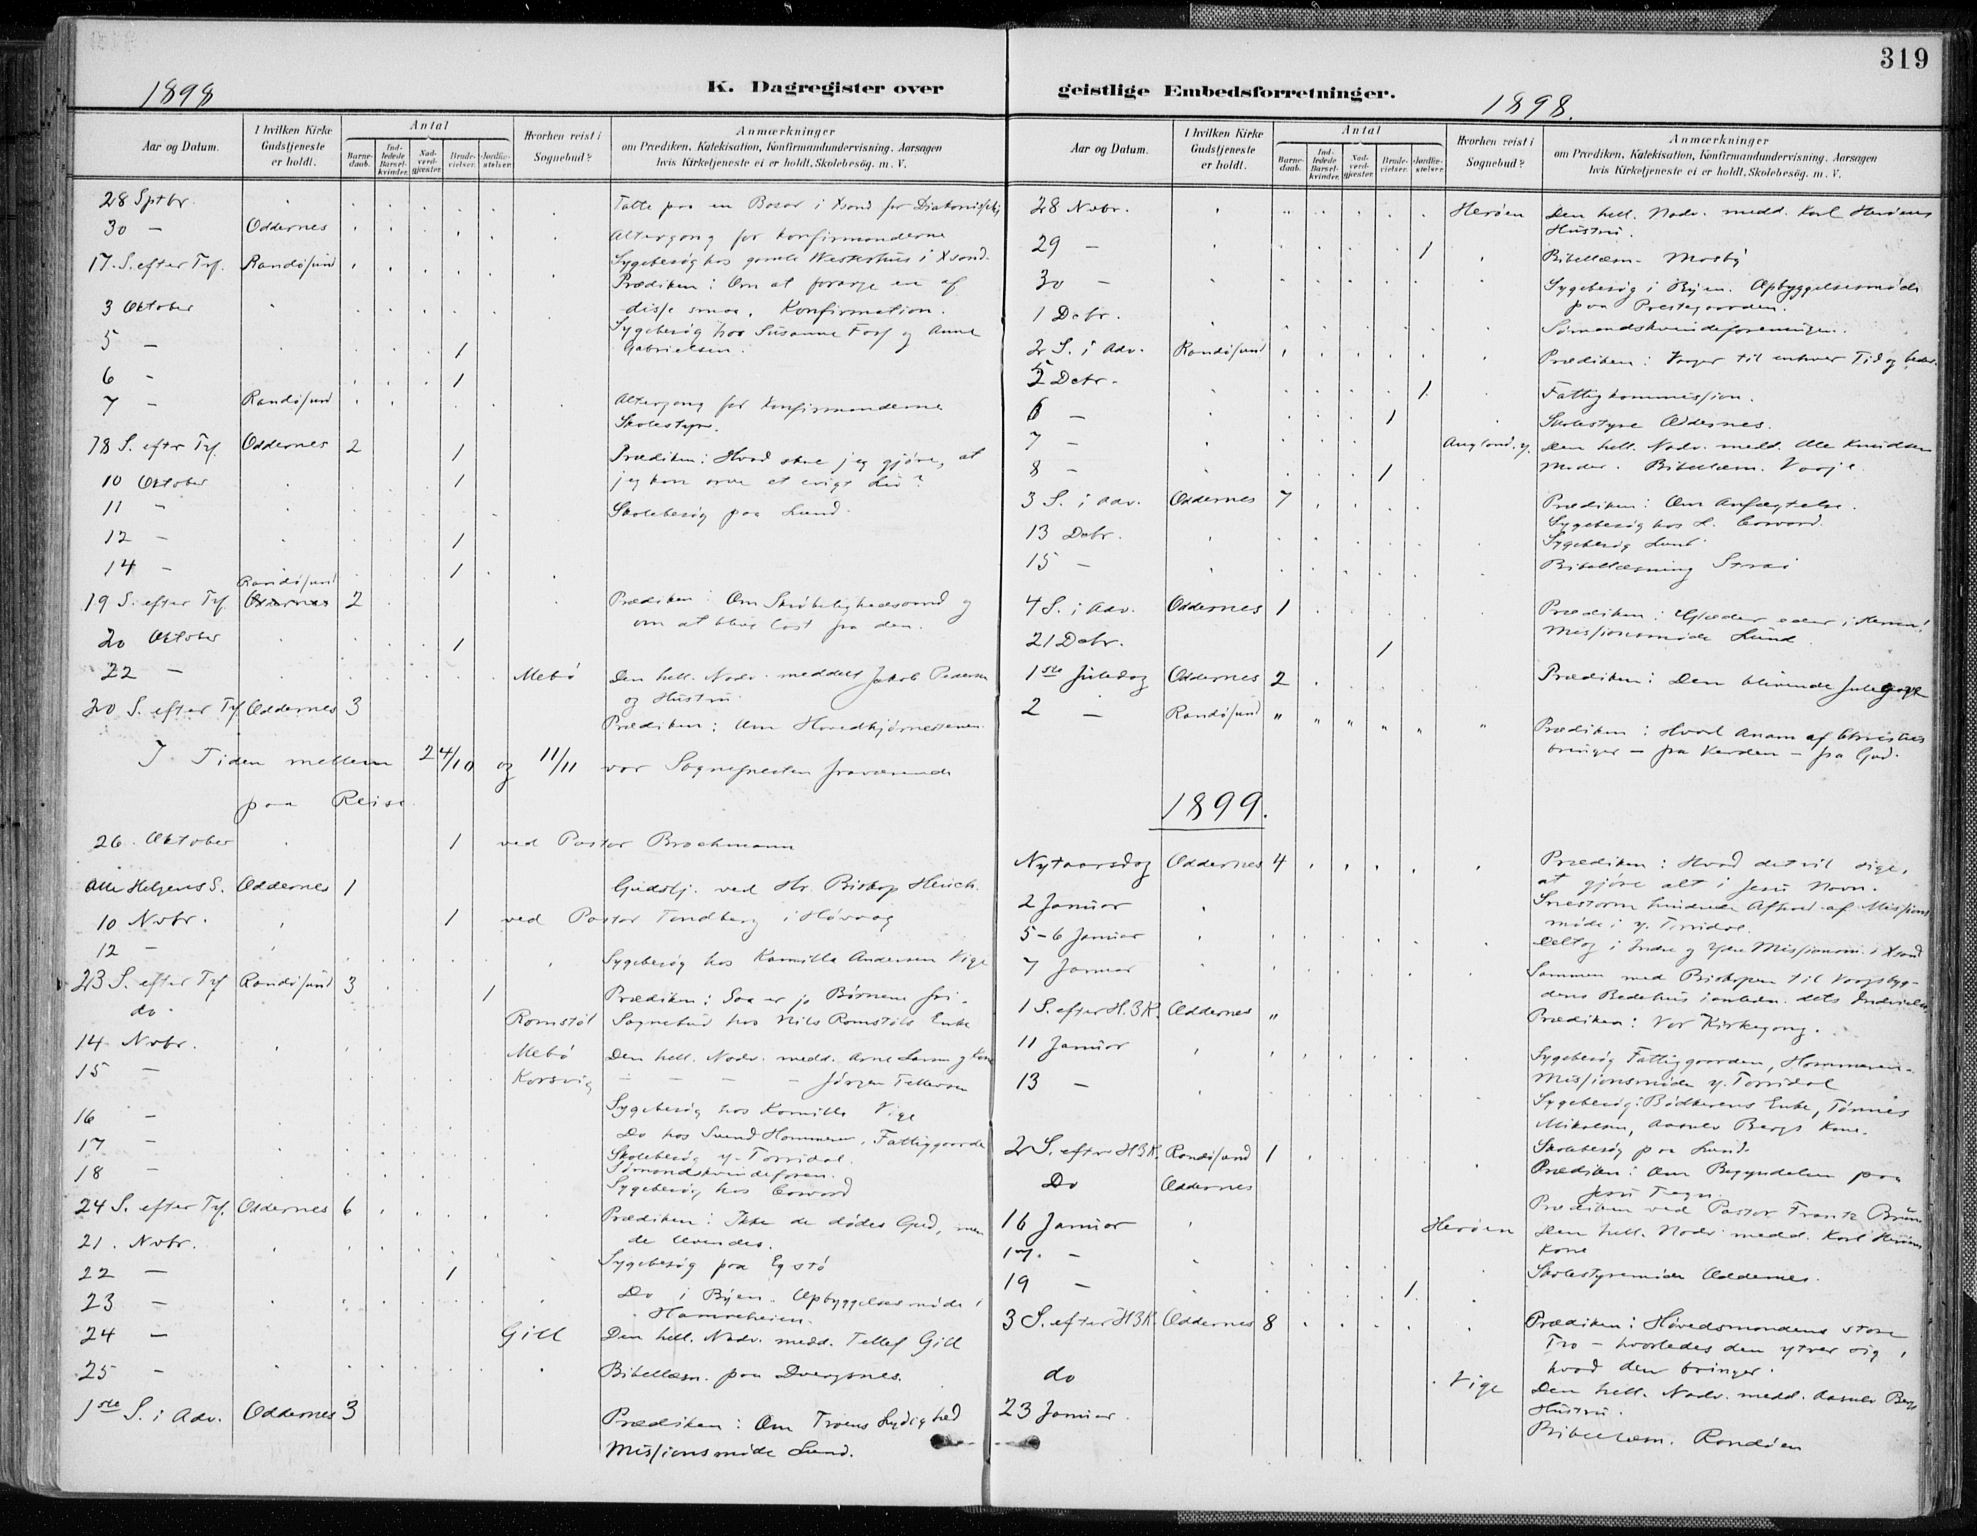 319
1898
K. Dagregister over
geistlige Embedsforretninger.
1898.
Aar og Datum.
I hvilken Kirke Gudstjeneste er holdt.
Antal
Barnedaab.
Indledede Barselkvinder.
Nadverdgjester.
Brudevielser.
Jordfæstelser.
Hvorhen reist i Sognebud?
Anmærkninger
om Prædiken, Katekisation, Konfirmandundervisning, Aarsagen
hvis Kirketjeneste ei er holdt, Skolebesög. m. V.
28 Sptbr. Talte paa en Basar i Xsand for
30 — Oddernes Altergang for Konfirmanderne
17. S. efter Trf. Randøsund Sygebesøg hos gamle Westerhus i Xsand.
Prædiken: Om at forarge en af
3 Oktober disse smaa. Konfirmation.
Sygebesøg hos Susanne Foss og Anne
5 — 1 Gabrielsen.
6 — 1
7 — Randøsund Altergang for Konfirmanderne
Skolestyre.
18 S. efter Trf. Oddernes 2 1 Prædiken: Hvad skal jeg gjøre, at
10 Oktober 1 jeg kan arve et evigt Liv?
11 — Skolebesøg paa Lund.
12 — 1
14 — 1
Randøsund
19 S. efter Trf. Oddernes 2 Prædiken: Om Skrøbelighedsaand og
om at blive løst fra den.
20 Oktober 1
22 — Mebø Den hell. Nadv. meddelt Jakob Pedersen
og Hustru.
20 S. efter Trf Oddernes 3
Prædiken: Om Hovedhjørnestenen.
I Tiden mellem 24/10 og 11/11 var Sognepresten fraværende
paa Reise.
26. Oktober 1 ved Pastor Brochmann
Alle Helgens S. Oddernes 1 Gudstj. ved Hr. Biskop Heuch.
10 Nvbr. 1 ved Pastor Tandberg i Høvaag
12 — Sygebesøg hos Kamilla Andersen Vige
23 S. efter Trf Randøsund 3 1 Prædiken: Saa er jo Børnene fri.
do. Romstøl Sognebud hos Nils Romstøls Enke
14 Nvbr. Mebø Den hell. Nadv. medd. Arne Larsen og Kone
15 — Korsvig — — — — Jørgen Tellefsen
Sygebesøg hos Kamilla Vige
16 — Do hos Svend Hommeren, Fattiggaarden
17 — Skolebesøg y. Torridal
Sømandskvindeforen.
18 — Sygebesøg hos
24 S. efter Trf. Oddernes 6 Prædiken: Ikke de dødes Gud, men
de levendes.
21. Nvbr. Sygebesøg paa Egstø
22 — 1 Do i Byen. Opbyggelsesmøde i
23 — Hamreheien.
24 — Gill Den hell. Nadv. medd. Tellef Gill
25 — Bibellæsn. paa Dvergsnes.
1ste S. i Adv. Oddernes 3 Prædiken: Om Troens Lydighed
Missionsmøde Lund.
Aar og Datum.
I hvilken Kirke Gudstjeneste er holdt.
Antal
Barnedaab.
Indledede Barselkvinder.
Nadverdgjester.
Brudevielser.
Jordfæstelser.
Hvorhen reist i Sognebud?
Anmærkninger
om Prædiken, Katekisation, Konfirmandundervisning, Aarsagen
hvis Kirketjeneste ei er holdt, Skolebesög. m. V.
28 Nvbr. Herøen Den hell. Nadv. medd. Karl Herøens
Hustru.
29 — 1 Bibellæsn. Mosby
30 — Sygebesøg i Byen. Opbyggelsesmøde
paa Prestegaarden.
1 Debr. Sømandskvindeforeningen.
2 S. i Adv. Randøsund Prædiken: Vaager til enhver Tid og beder.
5 Debr. 1 Fattigkommission.
6 — 1 Skolestyre Oddernes.
7 — Augland. y. Den hell. Nadv. medd. Ole Knudsen
8 — 1 Moder. Bibellæsn. Vaaje.
3 S. i Adv. Oddernes 7 Prædiken: Om Anfægtelse.
Sygebesøg hos L.
13 Debr. Sygebesøg Lund.
15 — Bibellæsning Strai
4 S. i Adv. Oddernes 1 Prædiken: Glæder eder i Herren!
Missionsmøde Lund.
21 Debr. 1
1ste Juledag Oddernes 2 Prædiken: Den blivende Julegave
2 — Randøsund Prædiken: Hvad Anam af Christus
bringer — fra Verden — fra Gud.
1899.
Nytaarsdag Oddernes 4 Prædiken: Hvad det vil sige,
at gjøre alt i Jesu Navn.
2 Januar Snestorm hindrede Afhold. af Missions
møde i y. Torridal.
5-6 Januar Deltog i Indre og Ydre Missionsm. i Xsand
7 Januar Sammen med Biskopen til Vaagsbyg-
dens Bedehus i anledn. dets Indvielse
1 S. efter H.3K. Oddernes Prædiken: Vor Kirkegang.
11 Januar Sygebesøg Fattiggaarden, Hommeren.
Missionsmøde y. Torridal
13 — Sygebesøg: Bødkerens Enke, Tønnes
Mikalsen, Aasulv Bergs Kone.
Skolebesøg paa Lund
2 S. efter H3K. Randøsund 1 Prædiken: Om Begyndelsen paa
Jesu Tegn.
Do Oddernes Prædiken ved Pastor Frantz Bruun
16 Januar Herøen Den hell. Nadv. medd. Karl Herøens
Kone
17. —
19 — 1 Skolestyremøde Oddernes.
3 S. efter H3K. Oddernes 8 Prædiken: Høvedsmandens store
Tro — hvorledes den ytrer sig,
hvad den bringer.
do Vige Den hell. Nadv. medd. Aasulv Bergs
Hustru.
23 Januar. Bibellæsn. Randøen